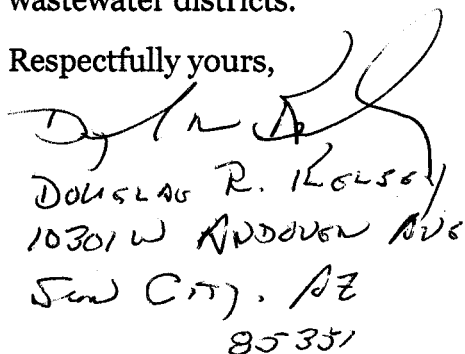 wastewater districts.
Respectfully yours,
DOUGLAS R. KELSEY
10301 W ANDOVER AVE
SUN CITY, AZ
85351